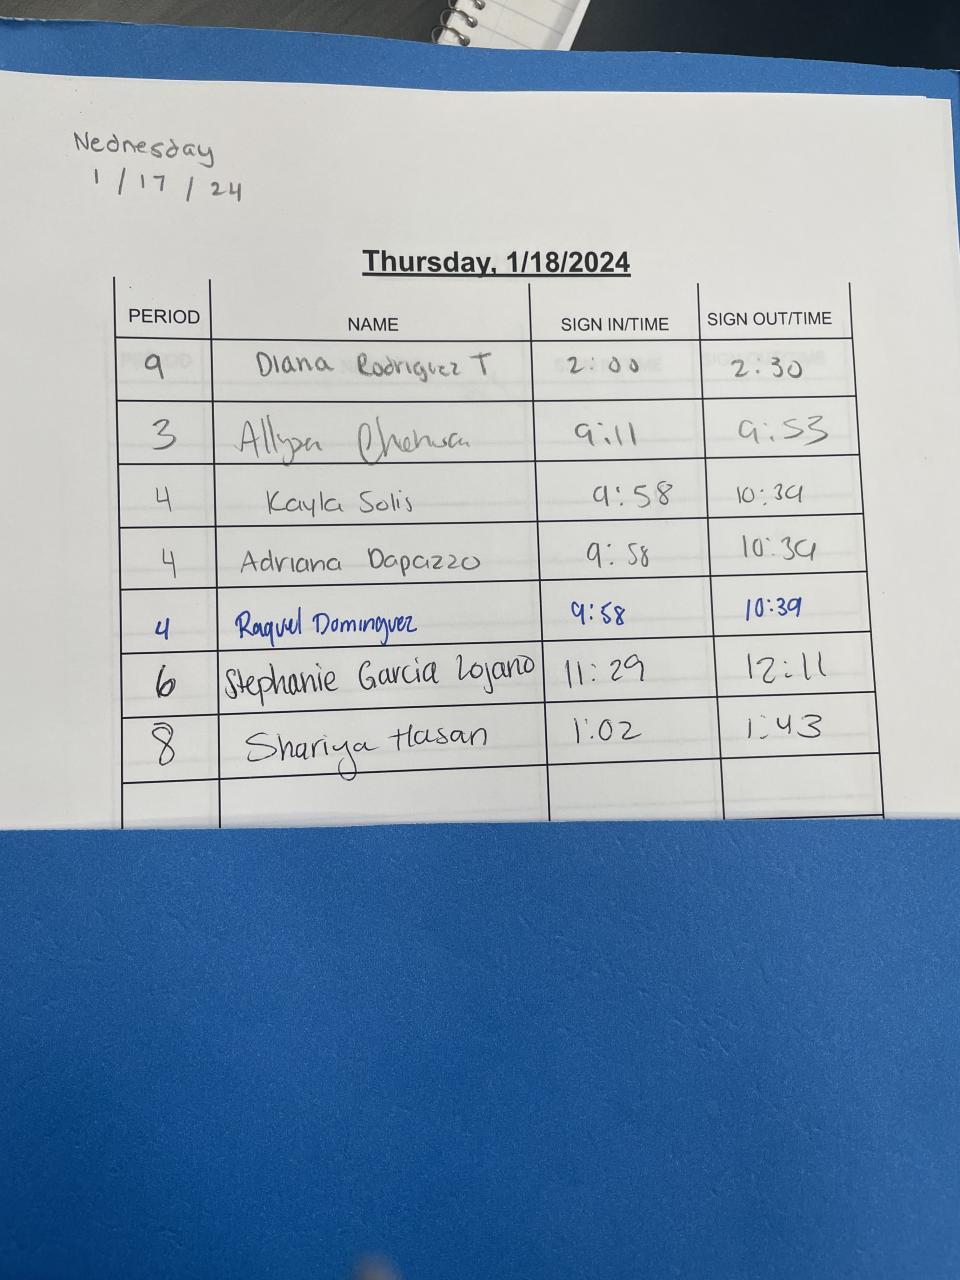 Wednesday
1/17/24
Thursday, 1/18/2024
PERIOD NAME SIGN IN/TIME SIGN OUT/TIME
9 Diana Rodriguez T 2:00 2:30
3 9:11 9:53
4 Kayla Solis 9:58 10:39
4 Adriana Dapazzo 9:58 10:39
4 Raquel Dominguez 9:58 10:39
6 Stephanie Garcia Lojano 11:29 12:11
8 Shariya Hasan 1:02 1:43